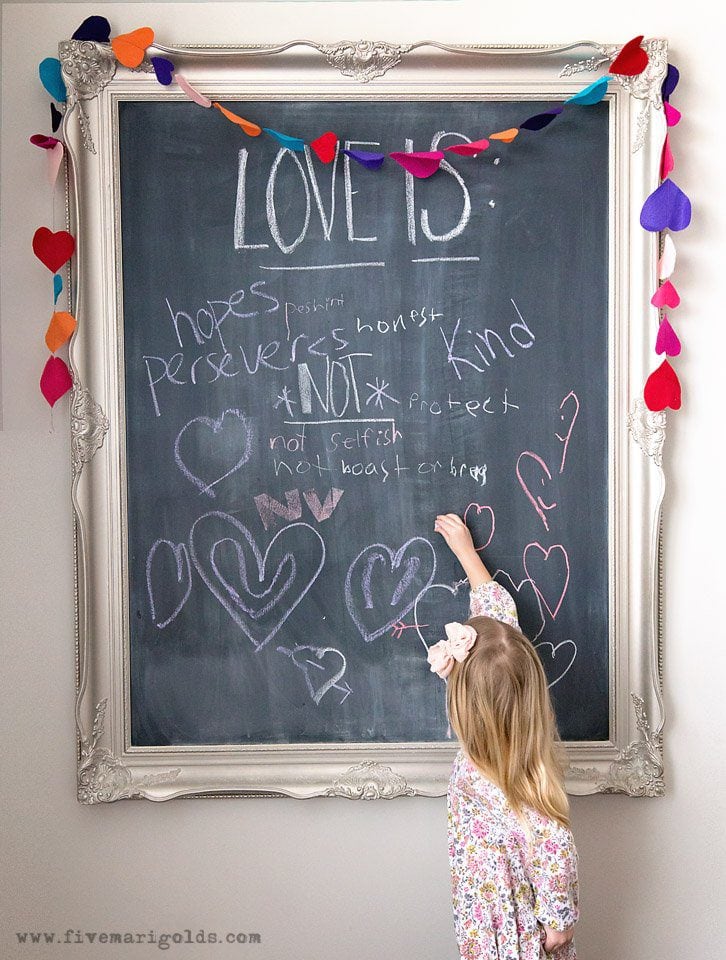 LOVE IS:
hopes peshint
perseveres honest Kind
*NOT* Protect
not selfish
not boast or brag
NV
www.fivemarigolds.com